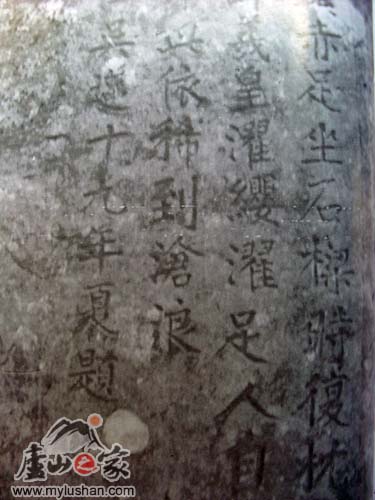 赤足坐石樑時復枕
羲皇濯纓濯足人自
此依稀到滄浪
吳邁十九年夏題
庐山之家
www.mylushan.com